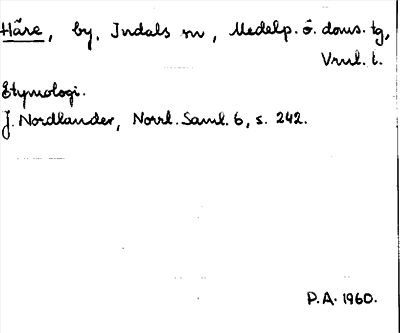 Håre, by, Indals sn, Medelp. ö. doms. tg,
Vnrl. l.
Etymologi.
J. Nordlander, Norrl. Saml. 6, s. 242.
P.A. 1960.